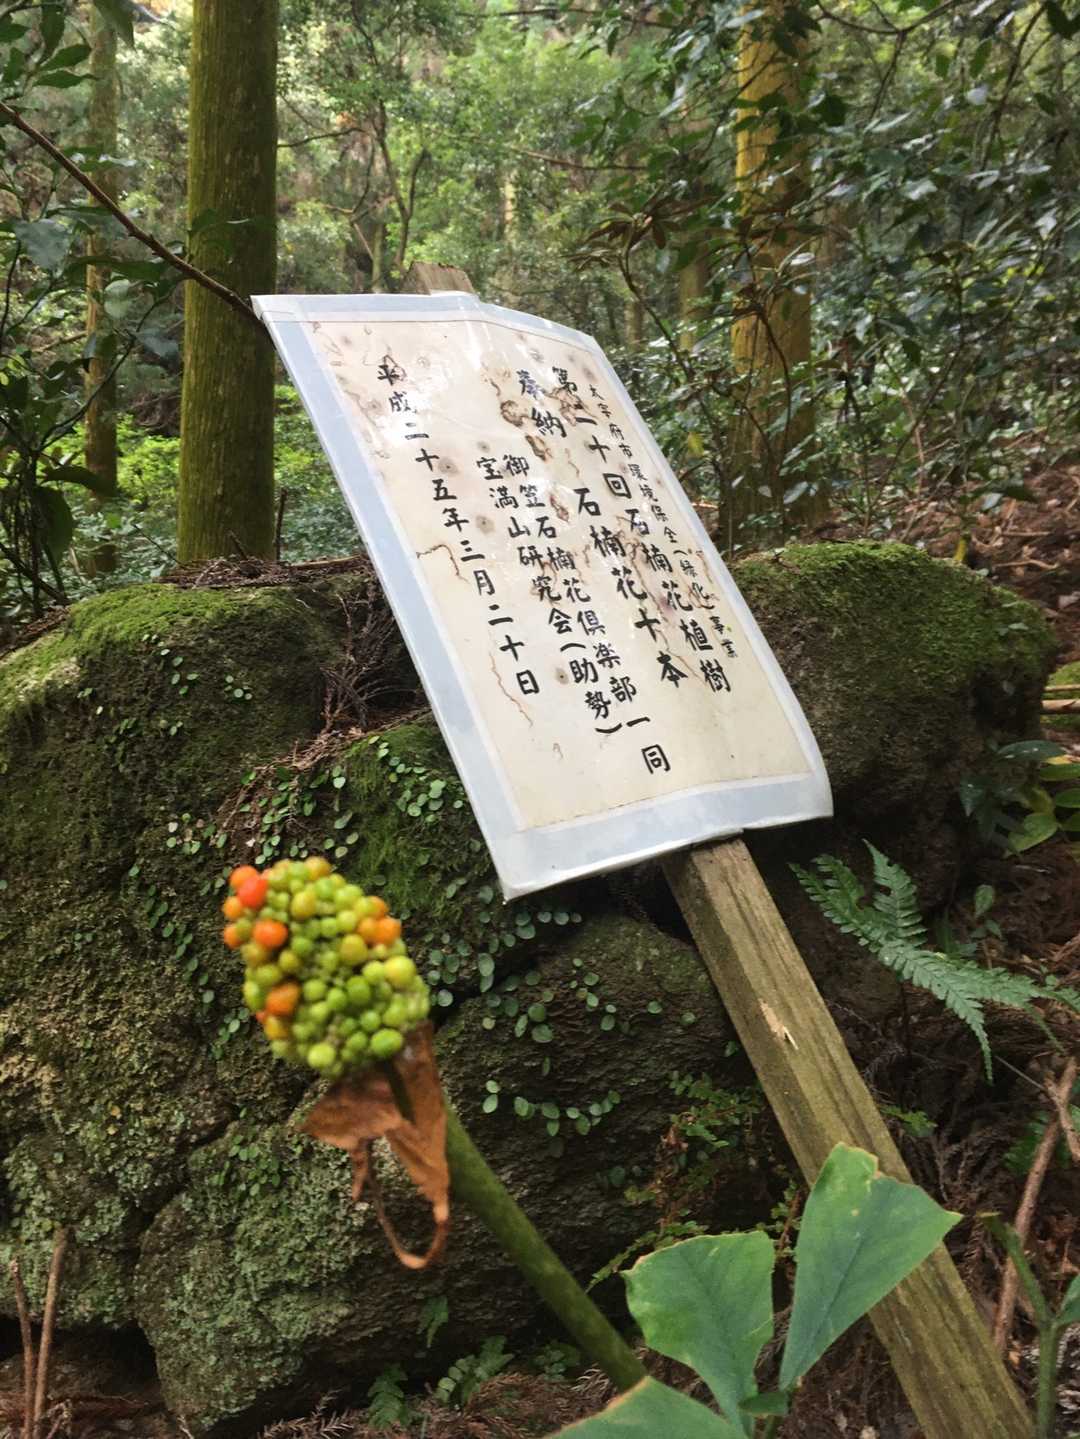 太宰府市環境保全(緑化)事業
第二十回石楠花植樹
奉納 石楠花十本
御笠石楠花倶楽部一同
宝満山研究会(助勢)
平成二十五年三月二十日